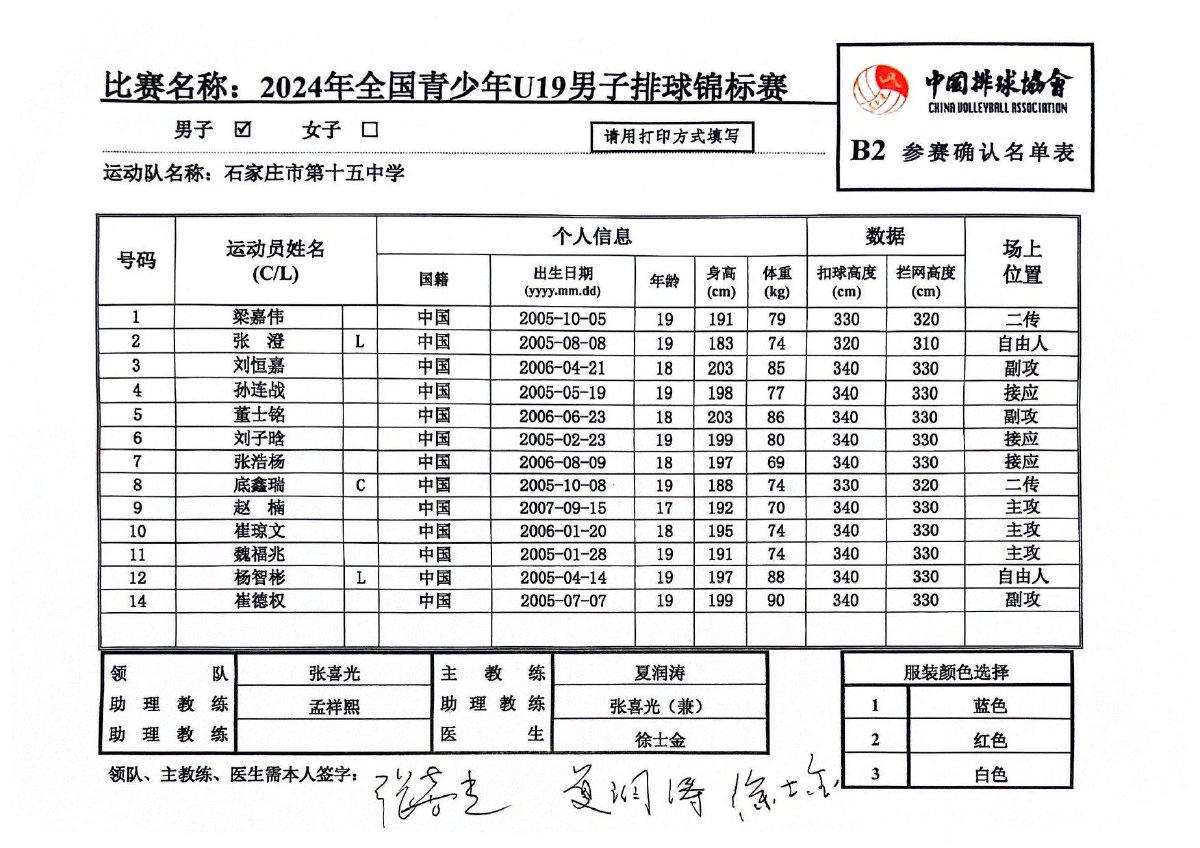 比赛名称：2024年全国青少年U19男子排球锦标赛
中国排球协會
CHINA VOLLEYBALL ASSOCIATION
男子 ☑ 女子 □ 请用打印方式填写
B2 参赛确认名单表
运动队名称：石家庄市第十五中学
号码 运动员姓名 (C/L) 个人信息 数据 场上位置
国籍 出生日期 (yyyy.mm.dd) 年龄 身高 (cm) 体重 (kg) 扣球高度 (cm) 拦网高度 (cm)
1 梁嘉伟 中国 2005-10-05 19 191 79 330 320 二传
2 张 澄 L 中国 2005-08-08 19 183 74 320 310 自由人
3 刘恒嘉 中国 2006-04-21 18 203 85 340 330 副攻
4 孙连战 中国 2005-05-19 19 198 77 340 330 接应
5 董士铭 中国 2006-06-23 18 203 86 340 330 副攻
6 刘子晗 中国 2005-02-23 19 199 80 340 330 接应
7 张浩杨 中国 2006-08-09 18 197 69 340 330 接应
8 底鑫瑞 C 中国 2005-10-08 19 188 74 330 320 二传
9 赵 楠 中国 2007-09-15 17 192 70 340 330 主攻
10 崔琼文 中国 2006-01-20 18 195 74 340 330 主攻
11 魏福兆 中国 2005-01-28 19 191 74 340 330 主攻
12 杨智彬 L 中国 2005-04-14 19 197 88 340 330 自由人
14 崔德权 中国 2005-07-07 19 199 90 340 330 副攻
领队 张喜光 主教练 夏润涛 服装颜色选择
助理教练 孟祥熙 助理教练 张喜光（兼） 1 蓝色
助理教练 医生 徐士金 2 红色
3 白色
领队、主教练、医生需本人签字： 张喜光 夏润涛 徐士金